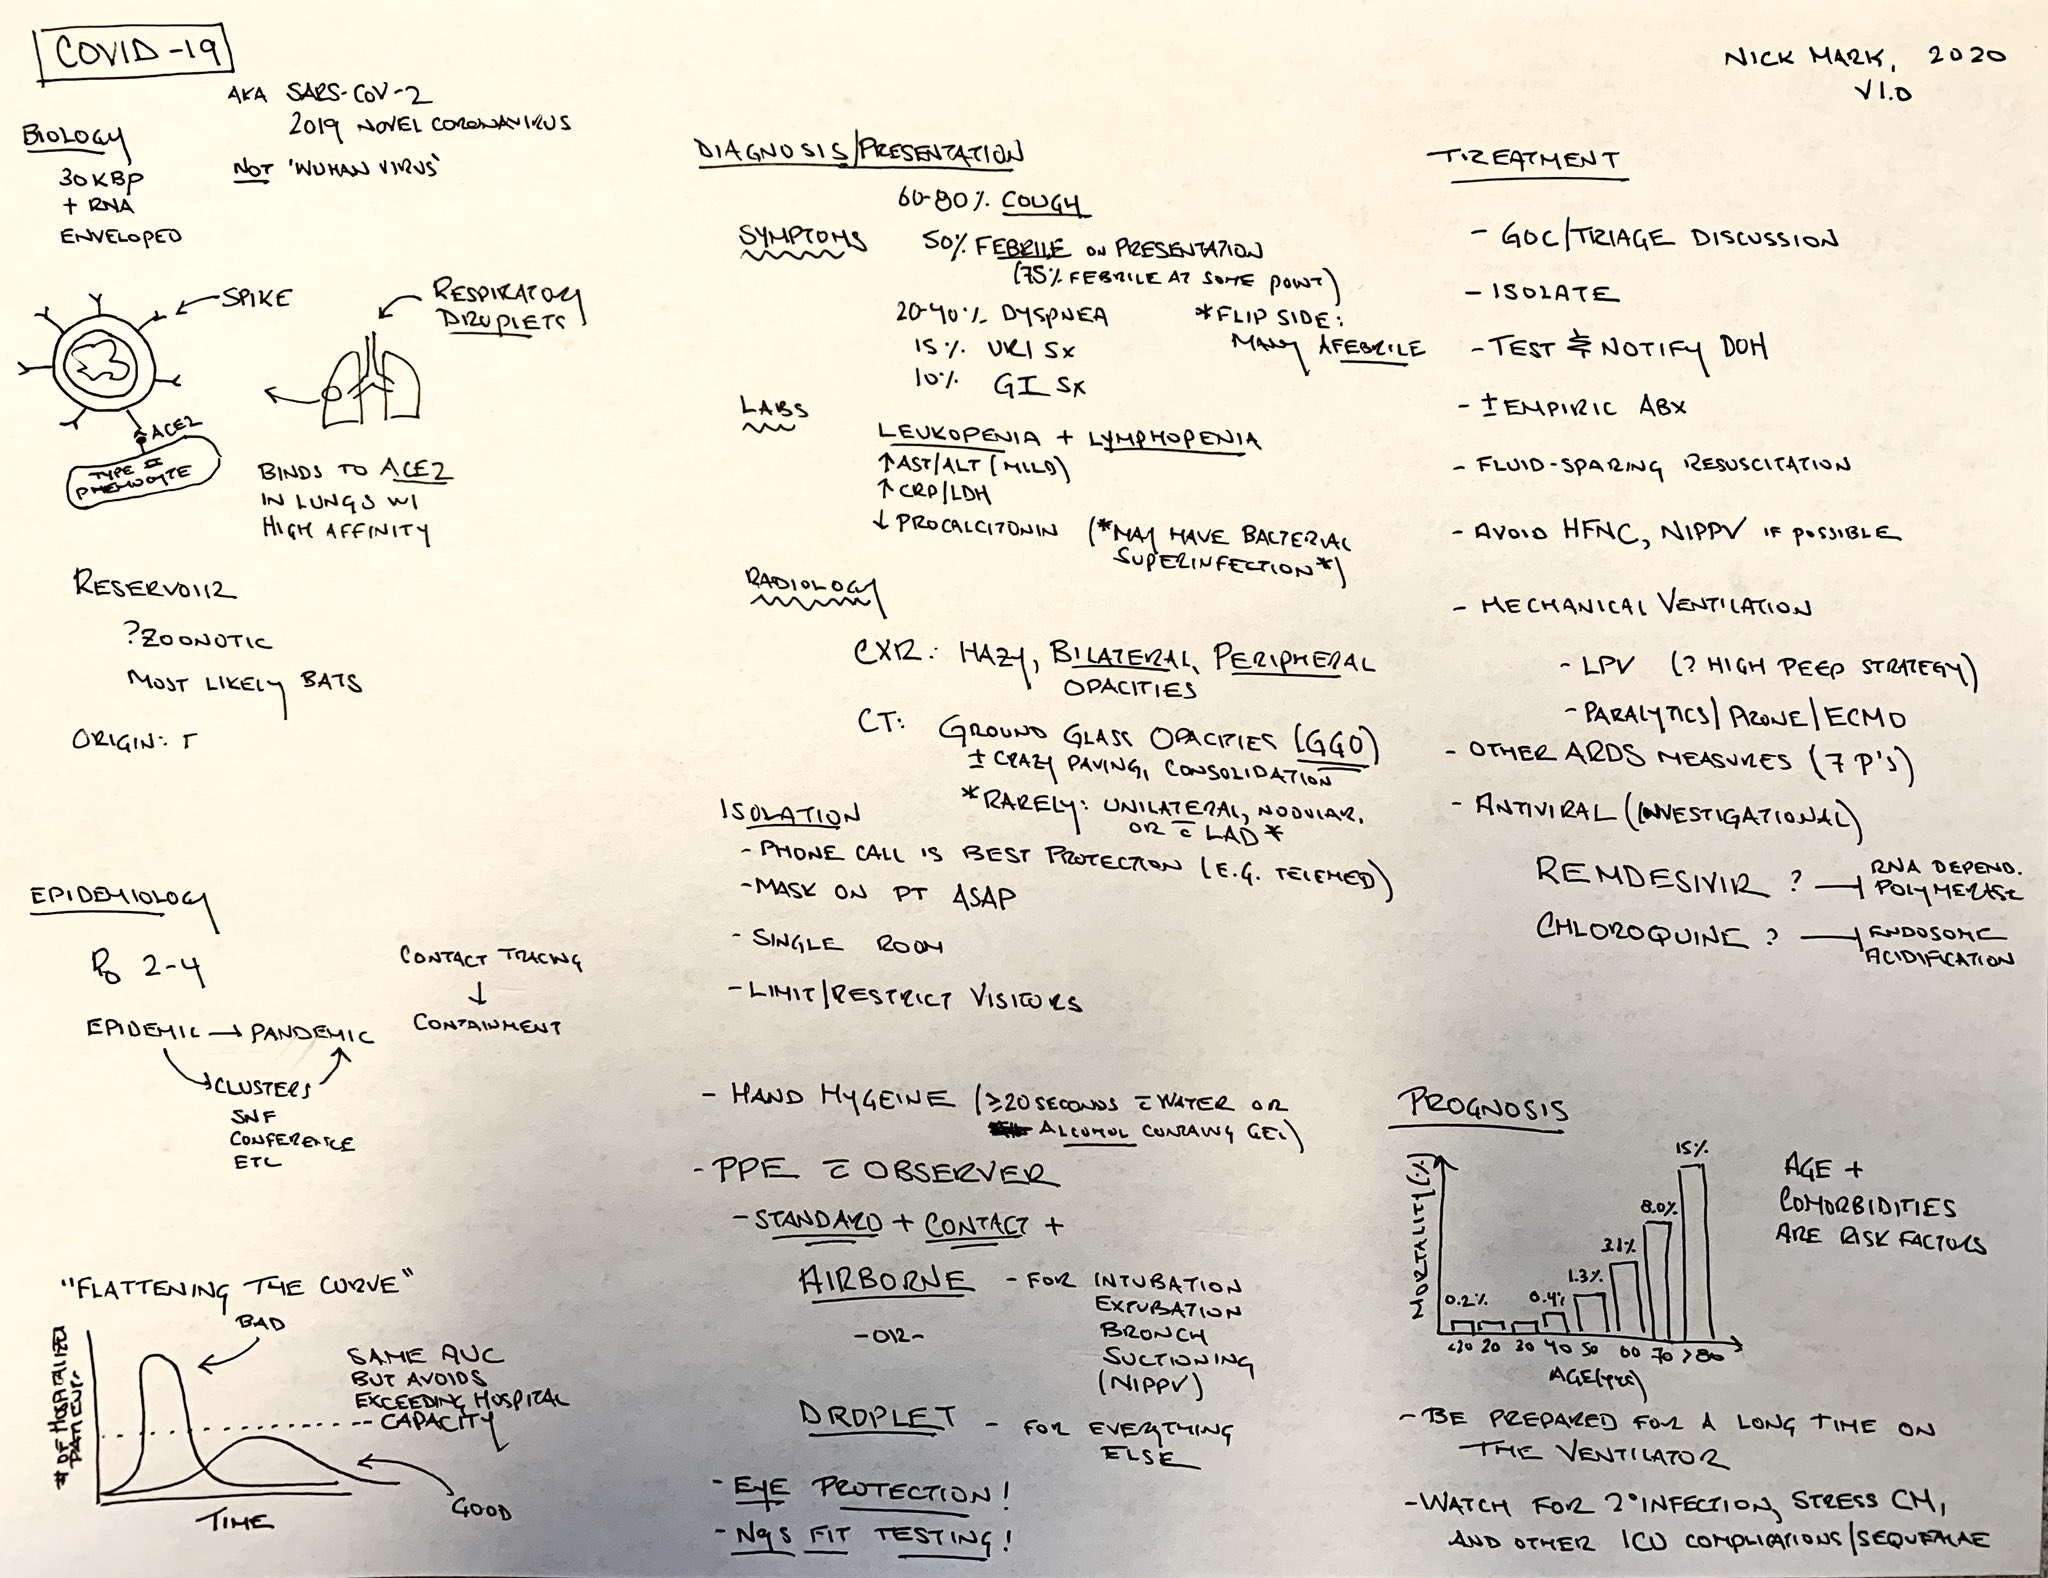 COVID-19
AKA SARS-COV-2
2019 NOVEL CORONAVIRUS
NOT 'WUHAN VIRUS'
NICK MARK, 2020
V1.0
BIOLOGY
30 KBP
+ RNA
ENVELOPED
SPIKE
RESPIRATORY
DROPLETS
ACE2
TYPE II
BINDS TO ACE2
IN LUNGS W/
HIGH AFFINITY
RESERVOIR
?ZOONOTIC
MOST LIKELY BATS
ORIGIN:
EPIDEMIOLOGY
R0 2-4
EPIDEMIC → PANDEMIC
CLUSTERS
SNF
CONFERENCE
ETC
CONTACT TRACING
↓
CONTAINMENT
"FLATTENING THE CURVE"
BAD
SAME AUC
BUT AVOIDS
EXCEEDING HOSPITAL
CAPACITY
GOOD
# OF HOSPITALIZED
PATIENTS
TIME
DIAGNOSIS/PRESENTATION
SYMPTOMS
60-80% COUGH
50% FEBRILE ON PRESENTATION
(75% FEBRILE AT SOME POINT)
20-40% DYSPNEA
15% URI SX
10% GI SX
*FLIP SIDE:
MANY AFEBRILE
LABS
LEUKOPENIA + LYMPHOPENIA
↑AST/ALT (MILD)
↑CRP/LDH
↓ PROCALCITONIN (*MAY HAVE BACTERIAL
SUPERINFECTION*)
RADIOLOGY
CXR: HAZY, BILATERAL, PERIPHERAL
OPACITIES
CT: GROUND GLASS OPACITIES (GGO)
± CRAZY PAVING, CONSOLIDATION
*RARELY: UNILATERAL, NODULAR,
OR c̄ LAD*
ISOLATION
- PHONE CALL IS BEST PROTECTION (E.G. TELEMED)
- MASK ON PT ASAP
- SINGLE ROOM
- LIMIT/RESTRICT VISITORS
- HAND HYGEINE (≥20 SECONDS c̄ WATER OR
ALCOHOL CONTAING GEL)
- PPE c̄ OBSERVER
- STANDARD + CONTACT +
AIRBORNE - FOR INTUBATION
EXTUBATION
-OR- BRONCH
SUCTIONING
(NIPPV)
DROPLET - FOR EVERYTHING
ELSE
- EYE PROTECTION!
- N95 FIT TESTING!
TREATMENT
- GOC/TRIAGE DISCUSSION
- ISOLATE
- TEST & NOTIFY DOH
- ±EMPIRIC ABX
- FLUID-SPARING RESUSCITATION
- AVOID HFNC, NIPPV IF POSSIBLE
- MECHANICAL VENTILATION
- LPV (? HIGH PEEP STRATEGY)
- PARALYTICS/PRONE/ECMO
- OTHER ARDS MEASURES (7 P'S)
- ANTIVIRAL (INVESTIGATIONAL)
REMDESIVIR ? ⊣ RNA DEPEND.
POLYMERASE
CHLOROQUINE ? ⊣ ENDOSOME
ACIDIFICATION
PROGNOSIS
MORTALITY (%)
0.2% 0.4% 1.3% 3.1% 8.0% 15%
20 30 40 50 60 70 >80
AGE (YRS)
AGE +
COMORBIDITIES
ARE RISK FACTORS
- BE PREPARED FOR A LONG TIME ON
THE VENTILATOR
- WATCH FOR 2° INFECTION, STRESS CM,
AND OTHER ICU COMPLICATIONS/SEQUELAE